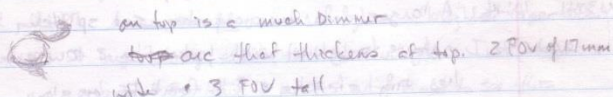 on top is a much Dimmer
arc that thickens at top. 2 FOV of 17 mm
wide • 3 FOV tall